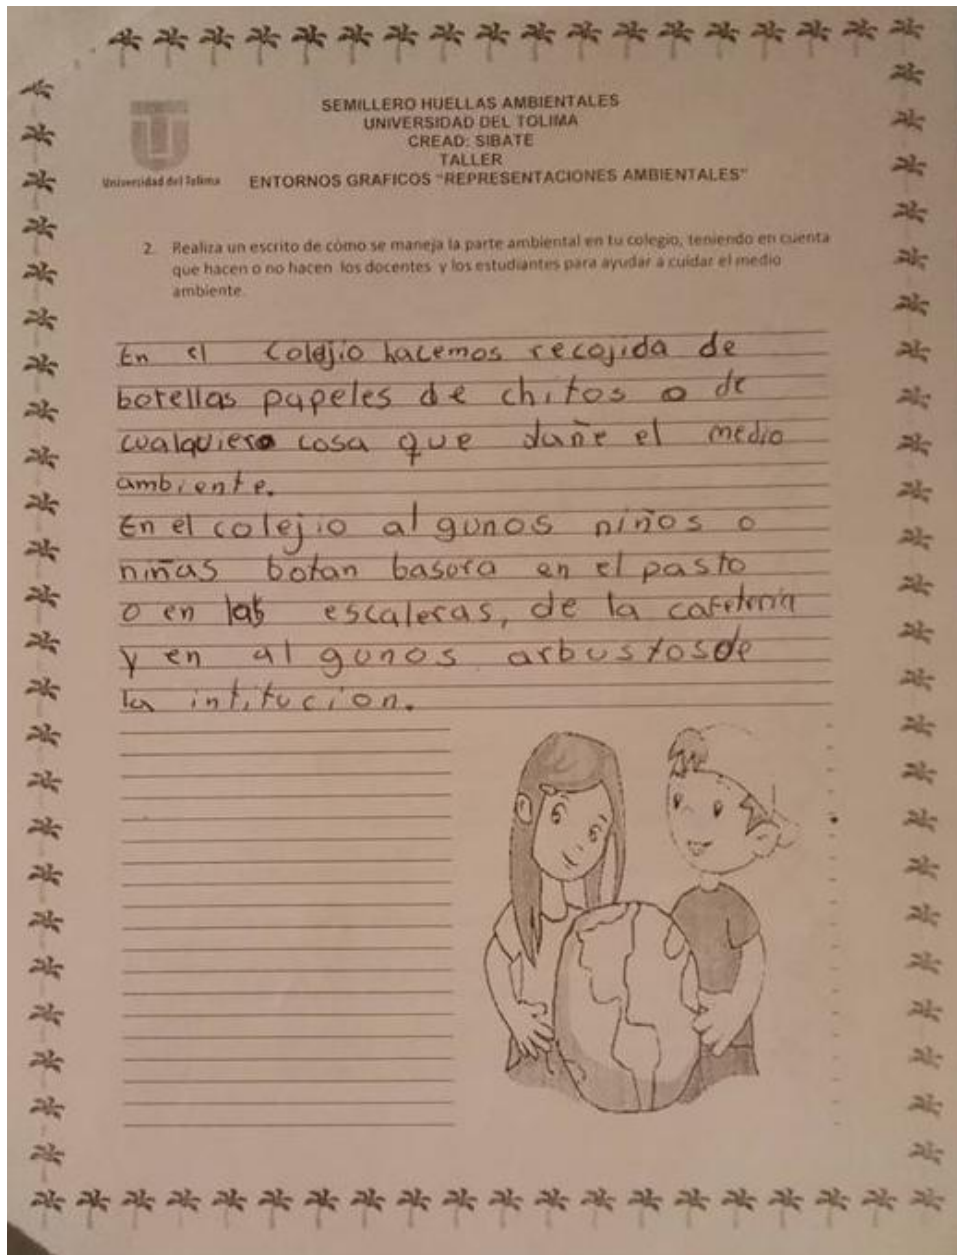 SEMILLERO HUELLAS AMBIENTALES
UNIVERSIDAD DEL TOLIMA
CREAD: SIBATE
TALLER
Universidad del Tolima
ENTORNOS GRAFICOS "REPRESENTACIONES AMBIENTALES"
2. Realiza un escrito de cómo se maneja la parte ambiental en tu colegio, teniendo en cuenta
que hacen o no hacen los docentes y los estudiantes para ayudar a cuidar el medio
ambiente.
En el Colejio hacemos recojida de
botellas papeles de chitos o de
cualquiera cosa que dañe el medio
ambiente.
En el colejio algunos niños o
niñas botan basura en el pasto
o en las escaleras, de la cafeteria
y en algunos arbustos de
la intitucion.